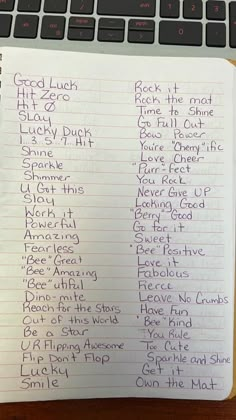 Good Luck
Hit Zero
Hit Ø
Slay
Lucky Duck
1 3 5 7 Hit
Shine
Sparkle
Shimmer
U Got this
Slay
Work it
Powerful
Amazing
Fearless
"Bee" Great
"Bee" Amazing
"Bee" utiful
Dino-mite
Reach for the Stars
Out of this World
Be a Star
U R Flipping Awesome
Flip Don't Flop
Lucky
Smile
Rock it
Rock the mat
Time to Shine
Go Full Out
Bow Power
You're "Cherry"ific
Love Cheer
"Purr-Fect
You Rock
Never Give UP
Looking Good
"Berry" Good
Go for it
Sweet
"Bee" Positive
Love it
Fabolous
Fierce
Leave No Crumbs
Have Fun
"Bee" Kind
You Rule
Too Cute
Sparkle and Shine
Get it
Own the Mat